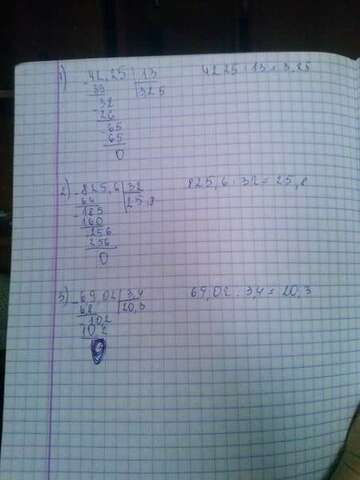 1) 42,25 | 13 42 25 : 13 = 3,25
39 | 3 2 5
32
26
65
65
0
2) 825,6 | 32 825,6 : 32 = 25,8
64 | 25,8
185
160
256
256
0
3) 69,02 | 3,4 69,02 : 3,4 = 20,3
68 | 20,3
102
102
0